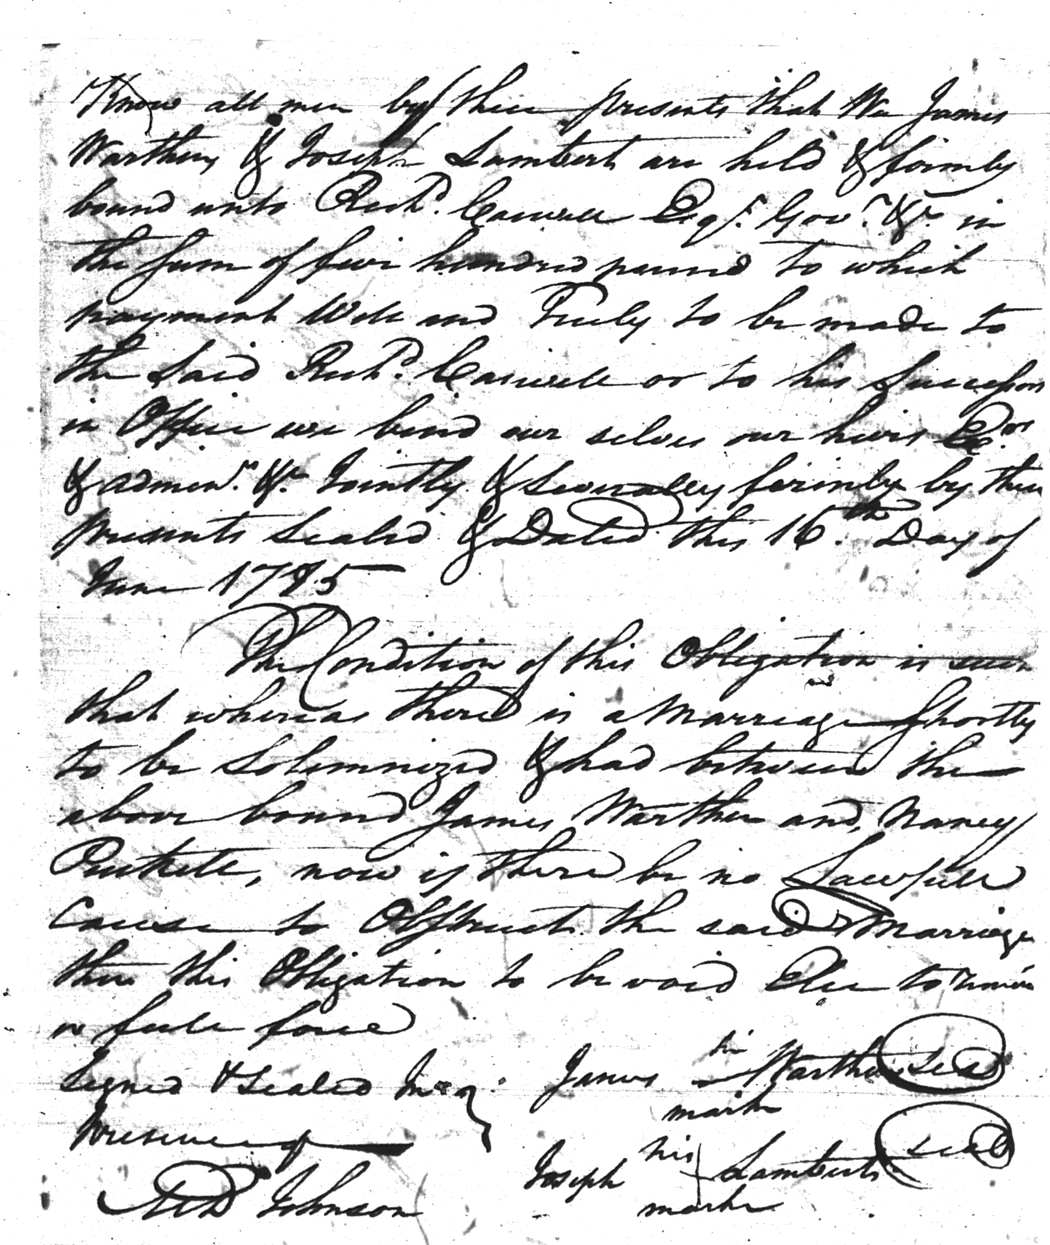 Know all men by these presents that We James
Warthen & Joseph Lambert are held & firmly
bound unto Richd. Caswell Esqr. Govr. &c. in
the sum of five hundred pound to which
payment Well and Truly to be made to
the said Richd. Caswell or to his Successors
in Office we bind our selves our heirs Exors
& admins. &c. Jointly & severalley firmly by these
presents sealed & Dated this 16.th Day of
June 1785
The Condition of this Obligation is such
that whereas there is a Marriage Shortly
to be Solemnized & had between the
above bound James Warthen and Nancy
Puckett, now if there be no Lawfull
Cause to Obstruct the said Marriage
then this Obligation to be void Else to remain
in full force
Signed & Sealed In
Presence of
his
James Warthen seal
mark
his
Joseph Lambert seal
mark
Johnson